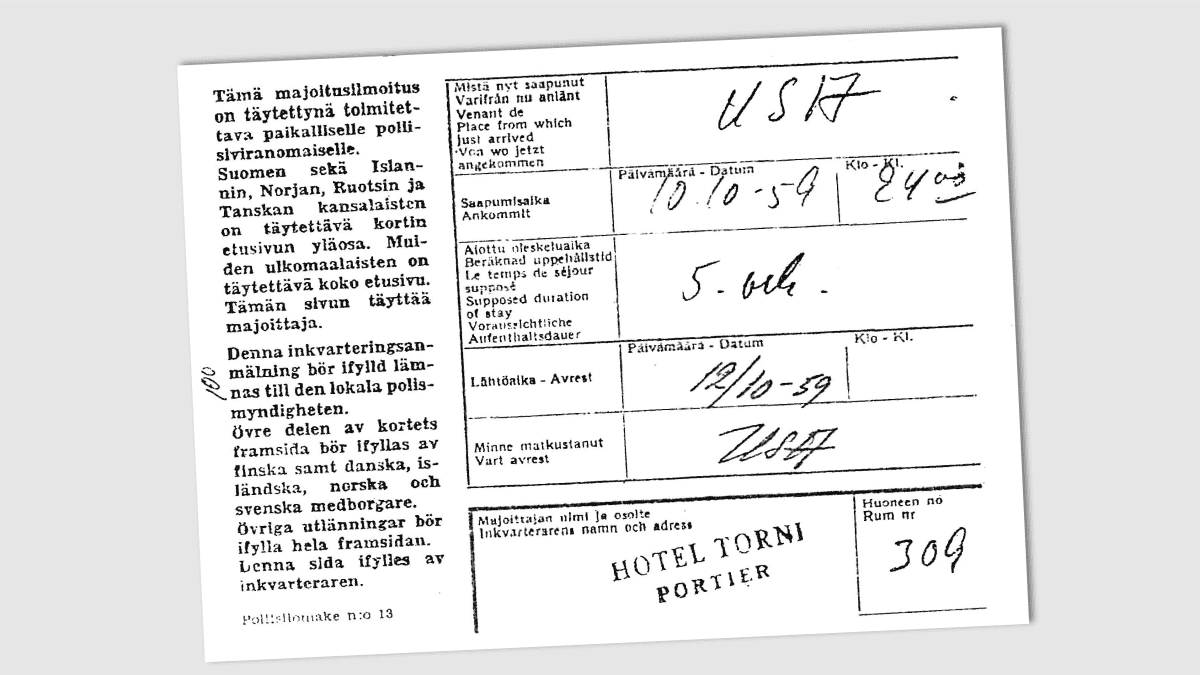 Tämä majoitusilmoitus
on täytettynä toimitet-
tava paikalliselle polii-
siviranomaiselle.
Suomen sekä Islan-
nin, Norjan, Ruotsin ja
Tanskan kansalaisten
on täytettävä kortin
etusivun yläosa. Mui-
den ulkomaalaisten on
täytettävä koko etusivu.
Tämän sivun täyttää
majoittaja.
Denna inkvarteringsan-
mälning bör ifylld läm-
nas till den lokala polis-
myndigheten.
Övre delen av kortets
framsida bör ifyllas av
finska samt danska, is-
ländska, norska och
svenska medborgare.
Övriga utlänningar bör
ifylla hela framsidan.
Denna sida ifylles av
inkvarteraren.
Poliisilomake n:o 13
100
Mistä nyt saapunut
Varifrån nu anlänt
Venant de
Place from which
just arrived
Von wo jetzt
angekommen
USA
Saapumisaika
Ankommit
Päivämäärä - Datum
10.10-59
Klo - Kl.
24 00
Aiottu oleskeluaika
Beräknad uppehållstid
Le temps de séjour
supposé
Supposed duration
of stay
Voraussichtliche
Aufenthaltsdauer
5.
Lähtöaika - Avrest
Päivämäärä - Datum
12/10-59
Klo - Kl.
Minne matkustanut
Vart avrest
USA
Majoittajan nimi ja osoite
Inkvarterarens namn och adress
HOTEL TORNI
PORTIER
Huoneen nö
Rum nr
309